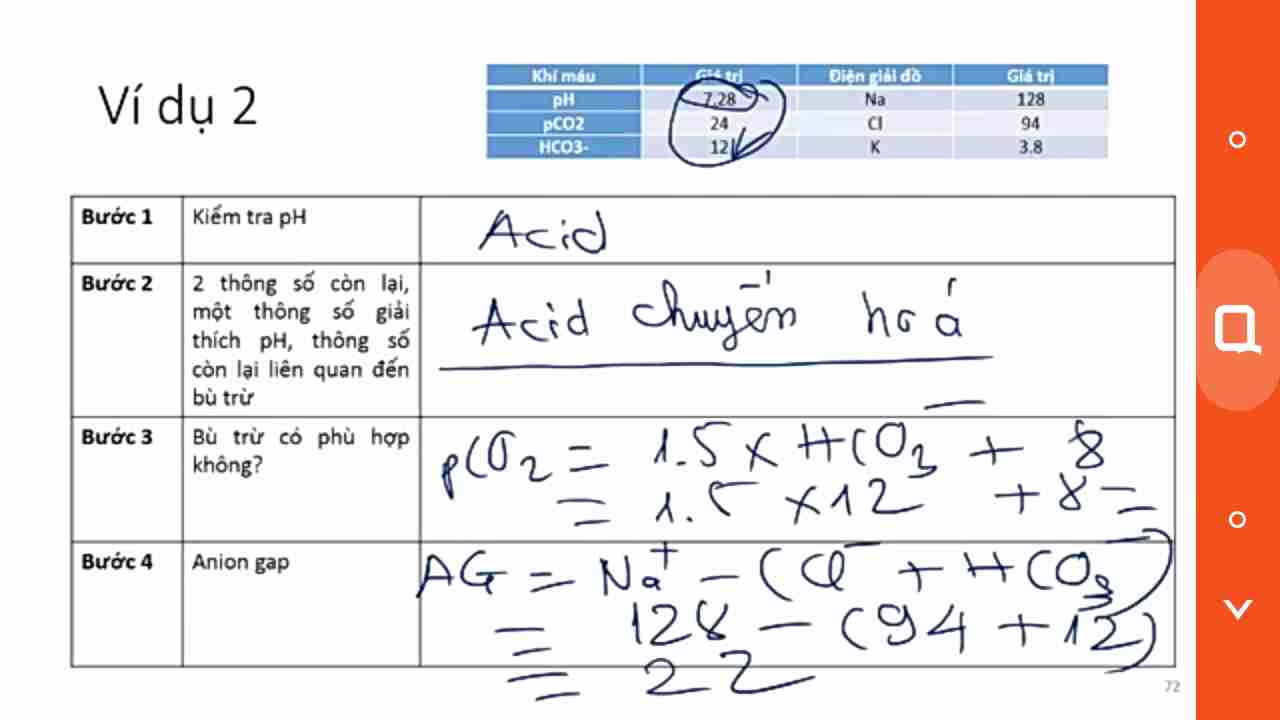 Ví dụ 2
Khí máu Giá trị Điện giải đồ Giá trị
pH 7.28 Na 128
pCO2 24 Cl 94
HCO3- 12 K 3.8
Bước 1 Kiểm tra pH Acid
Bước 2 2 thông số còn lại,
một thông số giải
thích pH, thông số
còn lại liên quan đến
bù trừ
Acid chuyển hoá
Bước 3 Bù trừ có phù hợp
không?
pCO2 = 1.5 x HCO3 + 8
= 1.5 x 12 + 8 =
Bước 4 Anion gap
AG = Na+ - (Cl- + HCO3-)
= 128 - (94 + 12)
= 22
72